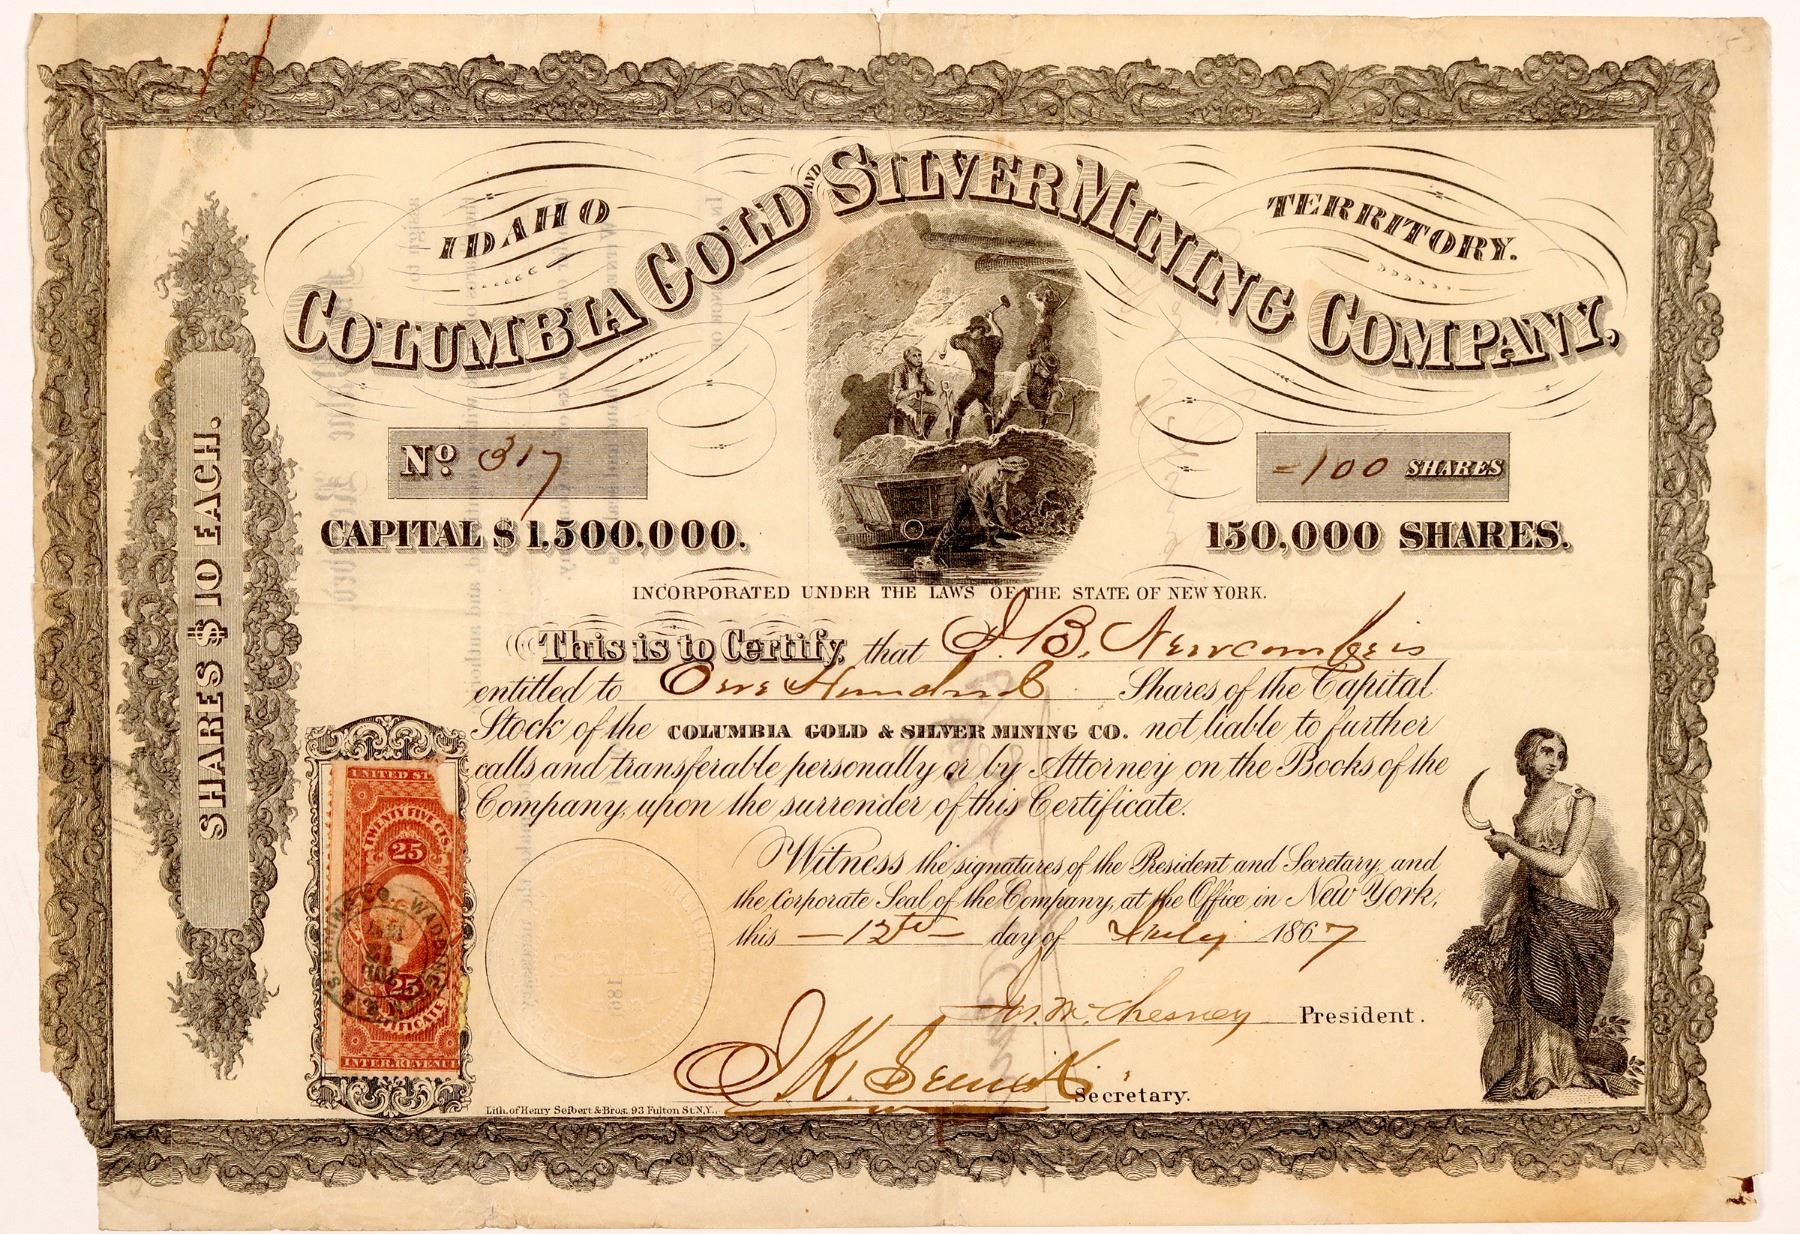 IDAHO TERRITORY.
COLUMBIA GOLD AND SILVER MINING COMPANY,
SHARES $10 EACH.
No. 317
-100 SHARES
CAPITAL $1,500,000.
150,000 SHARES.
INCORPORATED UNDER THE LAWS OF THE STATE OF NEW YORK.
This is to Certify, that J. B. Newcomb is
entitled to One Hundred Shares of the Capital
Stock of the COLUMBIA GOLD & SILVER MINING CO. not liable to further
calls and transferable personally or by Attorney on the Books of the
Company, upon the surrender of this Certificate.
Witness the signatures of the President and Secretary, and
the Corporate Seal of the Company, at the Office in New York,
this -12th- day of July 1867
McChesney President.
J. K. Secretary.
UNITED ST
TWENTY FIVE CTS.
25
25
CERTIFICATE
INTER. REVENUE
Lith. of Henry Seibert & Bros. 93 Fulton St. N.Y.